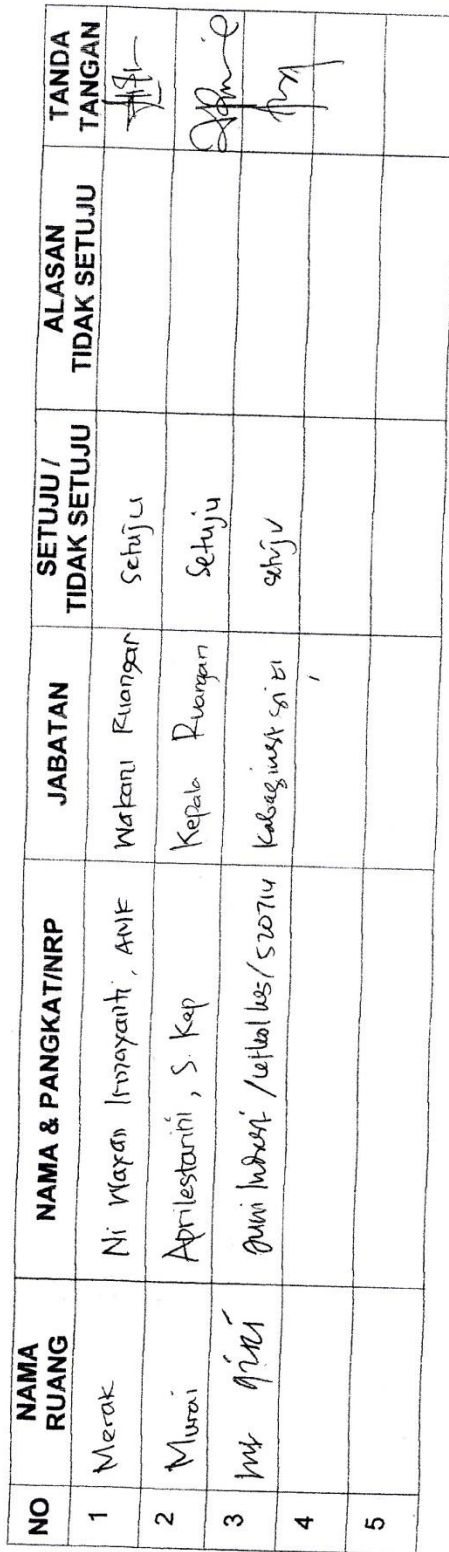 NO NAMA RUANG NAMA & PANGKAT/NRP JABATAN SETUJU / TIDAK SETUJU ALASAN TIDAK SETUJU TANDA TANGAN
1 Merak Ni Wayan Irmayanti, AMK Wakaru Ruangan Setuju
2 Murai Aprilestarini, S. Kep Kepala Ruangan Setuju
3 / letkol kes / 520714 setuju
4
5